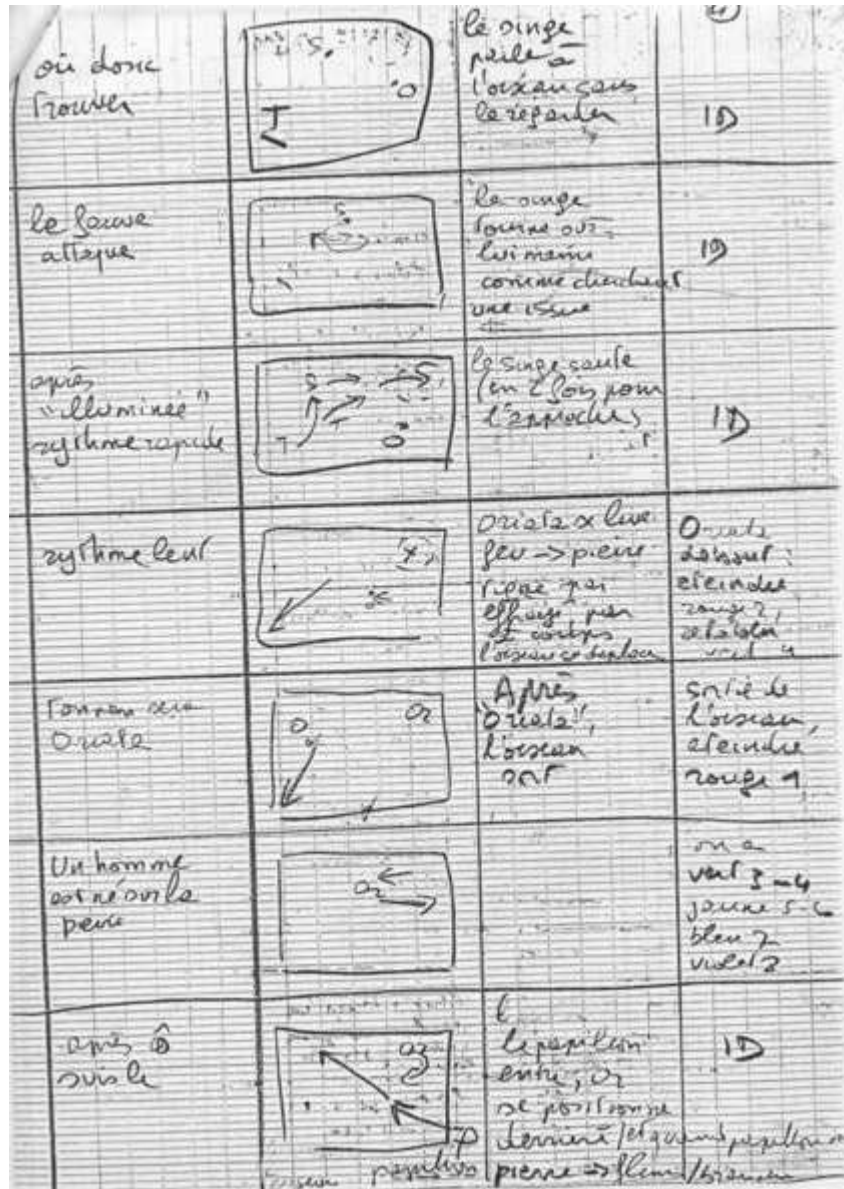 où donc
trouver
S.
O
T
le singe
parle à
l'oiseau sans
le regarder
ID
le fauve
attaque
S
le singe
tourne sur
lui même
comme cherchant
une issue
ID
après
"illuminée"
rythme rapide
S → → S
T T
O
le singe saute
en 2 fois pour
l'approcher
ID
rythme lent
Oriata x lève
feu → pierre
effrayé par
l'oiseau se
Oriata
debout :
éteindre
rouge 2,
sera
Oriata
O
Or
Après
"Oriata",
l'oiseau
sort
sortie de
l'oiseau,
éteindre
rouge 1
Un homme
est né sur la
Or
on a
vert 3-4
jaune 5-6
bleu 7
violet 8
après
suis le
Or
P
papillon
le papillon
entre, Or
se positionne
derrière / et quand papillon
pierre → fleur /
ID